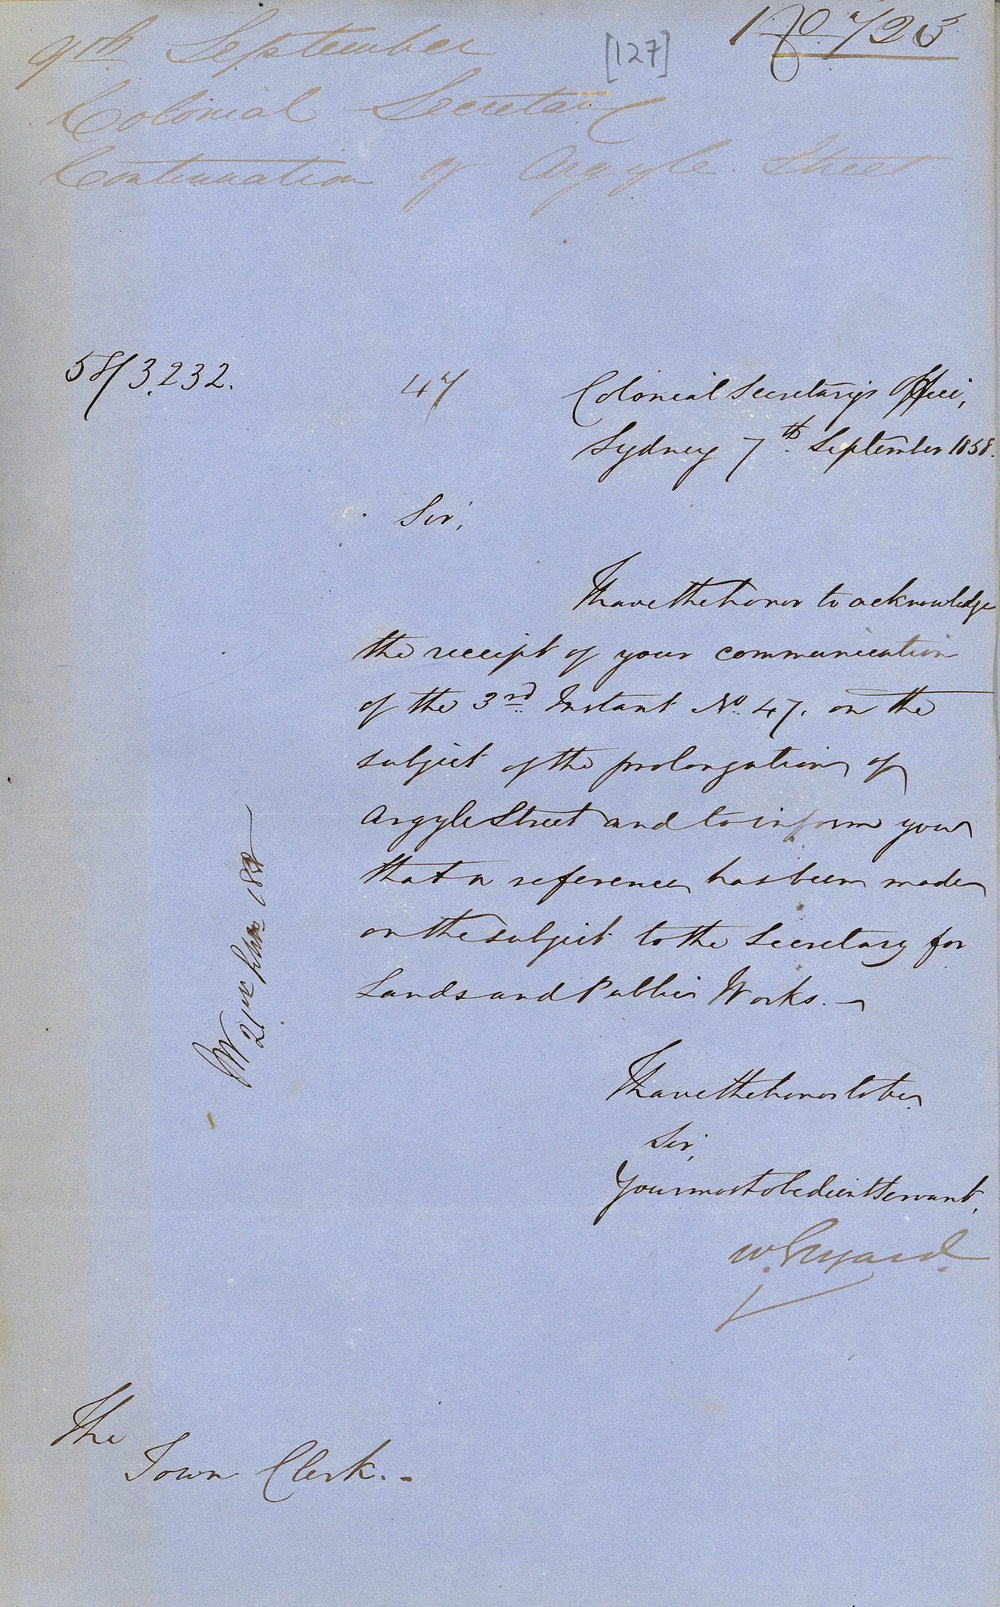 9th September
[127]
No 723
Colonial Secretary
Continuation of Argyle Street
58/3,232.
47
Colonial Secretary's Office,
Sydney 7th. September 1858.
Sir,
I have the honor to acknowledge
the receipt of your communication
of the 3rd. Instant No. 47. on the
subject of the prolongation of
Argyle Street and to inform you
that a reference has been made
on the subject to the Secretary for
Lands and Public Works.
I have the honor to be
Sir,
Your most obedient Servant,
The
Town Clerk.